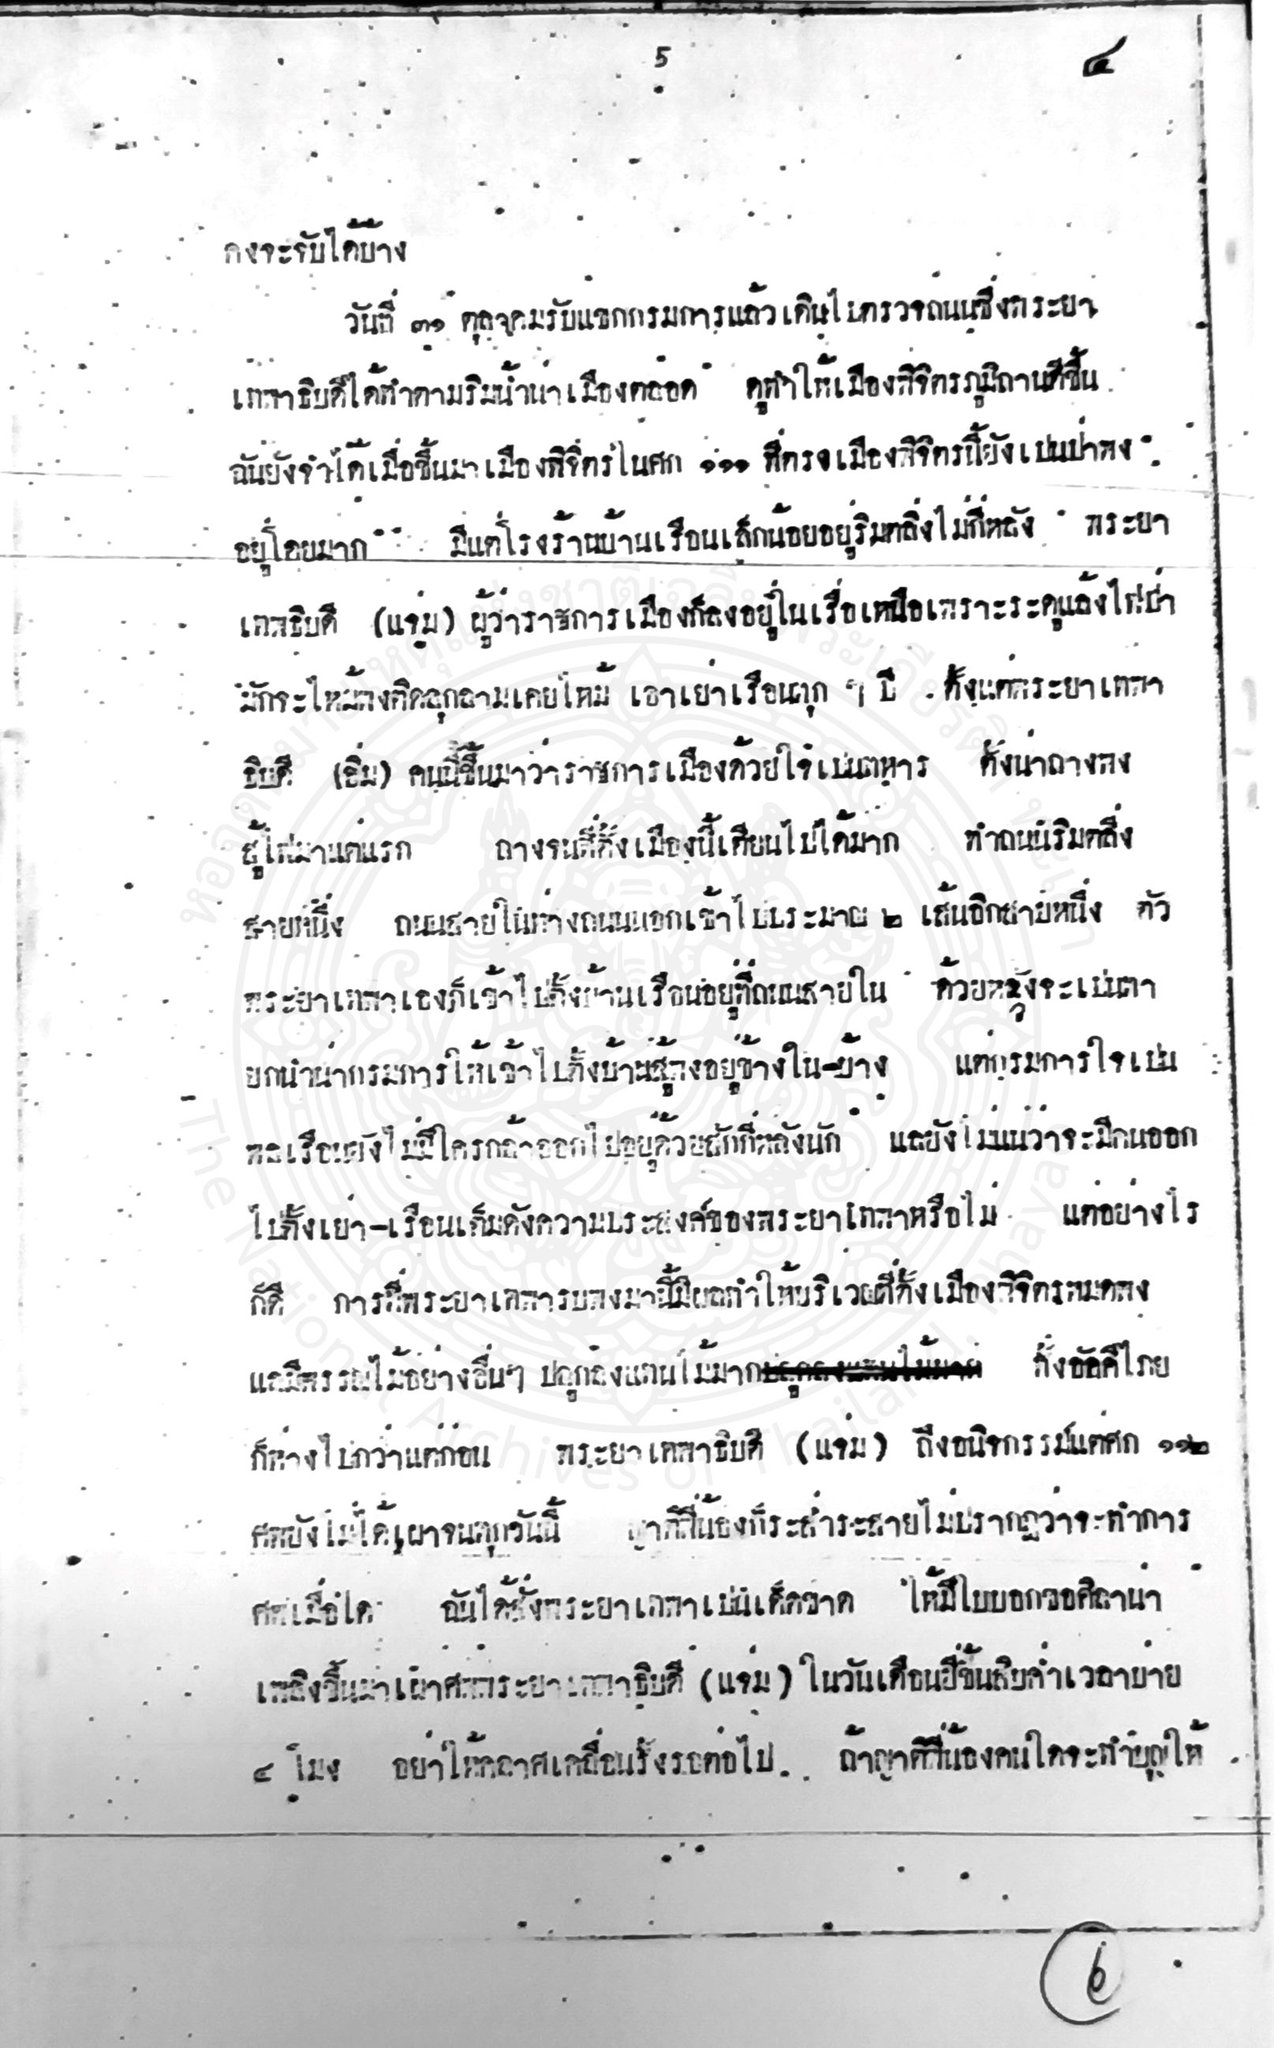 5
๔
คงจะรับได้บ้าง
วันที่ ๓๑ ตุลาคมรับแขกกรมการแล้วเดินไปตรวจถนนซึ่งพระยา
เทพาธิบดีได้ทำตามริมน้ำน่าเมืองตลอด ดูทำให้เมืองพิจิตรภูมิถานดีขึ้น
ฉันยังจำได้เมื่อขึ้นมาเมืองพิจิตรในศก ๑๑๑ ที่ตรงเมืองพิจิตรนี้ยังเปนป่าพง
อยู่โดยมาก มีแต่โรงร้านบ้านเรือนเล็กน้อยอยู่ริมตลิ่งไม่กี่หลัง พระยา
เทพธิบดี (แจ่ม) ผู้ว่าราชการเมืองก็ลงอยู่ในเรือเหนือเพราะระดูแล้งไฟป่า
มักจะไหม้พงติดลุกลามเคยไหม้ เอาเย่าเรือนทุก ๆ ปี ตั้งแต่พระยาเทพา
ธิบดี (อิ่ม) คนนี้ขึ้นมาว่าราชการเมืองด้วยใจเปนทหาร ตั้งน่าถางพง
สู้ไฟมาแต่แรก ถางจนที่ตั้งเมืองนี้เตียนไปได้มาก ทำถนนริมตลิ่ง
สายหนึ่ง ถนนสายในห่างถนนนอกเข้าไปประมาณ ๒ เส้นอีกสายหนึ่ง ตัว
พระยาเทพาเองก็เข้าไปตั้งบ้านเรือนอยู่ที่ถนนสายใน ด้วยหวังจะเปนตา
ยกนำน่ากรมการให้เข้าไปตั้งบ้านสู้พงอยู่ข้างใน-บ้าง แต่กรมการใจเปน
พลเรือนยังไม่มีใครกล้าออกไปอยู่ด้วยสักกี่หลังนัก แลยังไม่แน่ว่าจะมีคนออก
ไปตั้งเย่า-เรือนเต็มดังความประสงค์ของพระยาเทพาหรือไม่ แต่อย่างไร
ก็ดี การที่พระยาเทพารบพงมานี้มีผลทำให้บริเวณที่ตั้งเมืองพิจิตรหมดพง
แลมีพรรณไม้อย่างอื่นๆ ปลูกลงแทนไม้มาก ทั้งอัคคีไภย
ก็ห่างไปกว่าแต่ก่อน พระยาเทพาธิบดี (แจ่ม) ถึงอนิจกรรม์แต่ศก ๑๑๒
ศพยังไม่ได้เผาจนทุกวันนี้ ญาติพี่น้องก็ระส่ำระสายไม่ปรากฏว่าจะทำการ
ศพเมื่อใด ฉันได้สั่งพระยาเทพาเปนเด็ดขาด ให้มีใบบอกขอศิลาน่า
เพลิงขึ้นมาเผาศพพระยาเทพาธิบดี (แจ่ม) ในวันเดือนยี่ขึ้นสิบค่ำเวลาบ่าย
๔ โมง อย่าให้คลาศเคลื่อนรั้งรอต่อไป ถ้าญาติพี่น้องคนใดจะทำบุญให้
๖
หอจดหมายเหตุแห่งชาติเฉลิมพระเกียรติ
The National Archives of Thailand